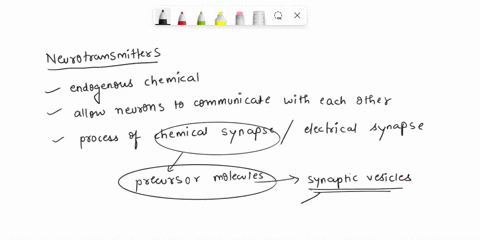 Neurotransmitters
endogenous chemical
allow neurons to communicate with each other
process of chemical synapse / electrical synapse
precursor molecules → synaptic vesicles